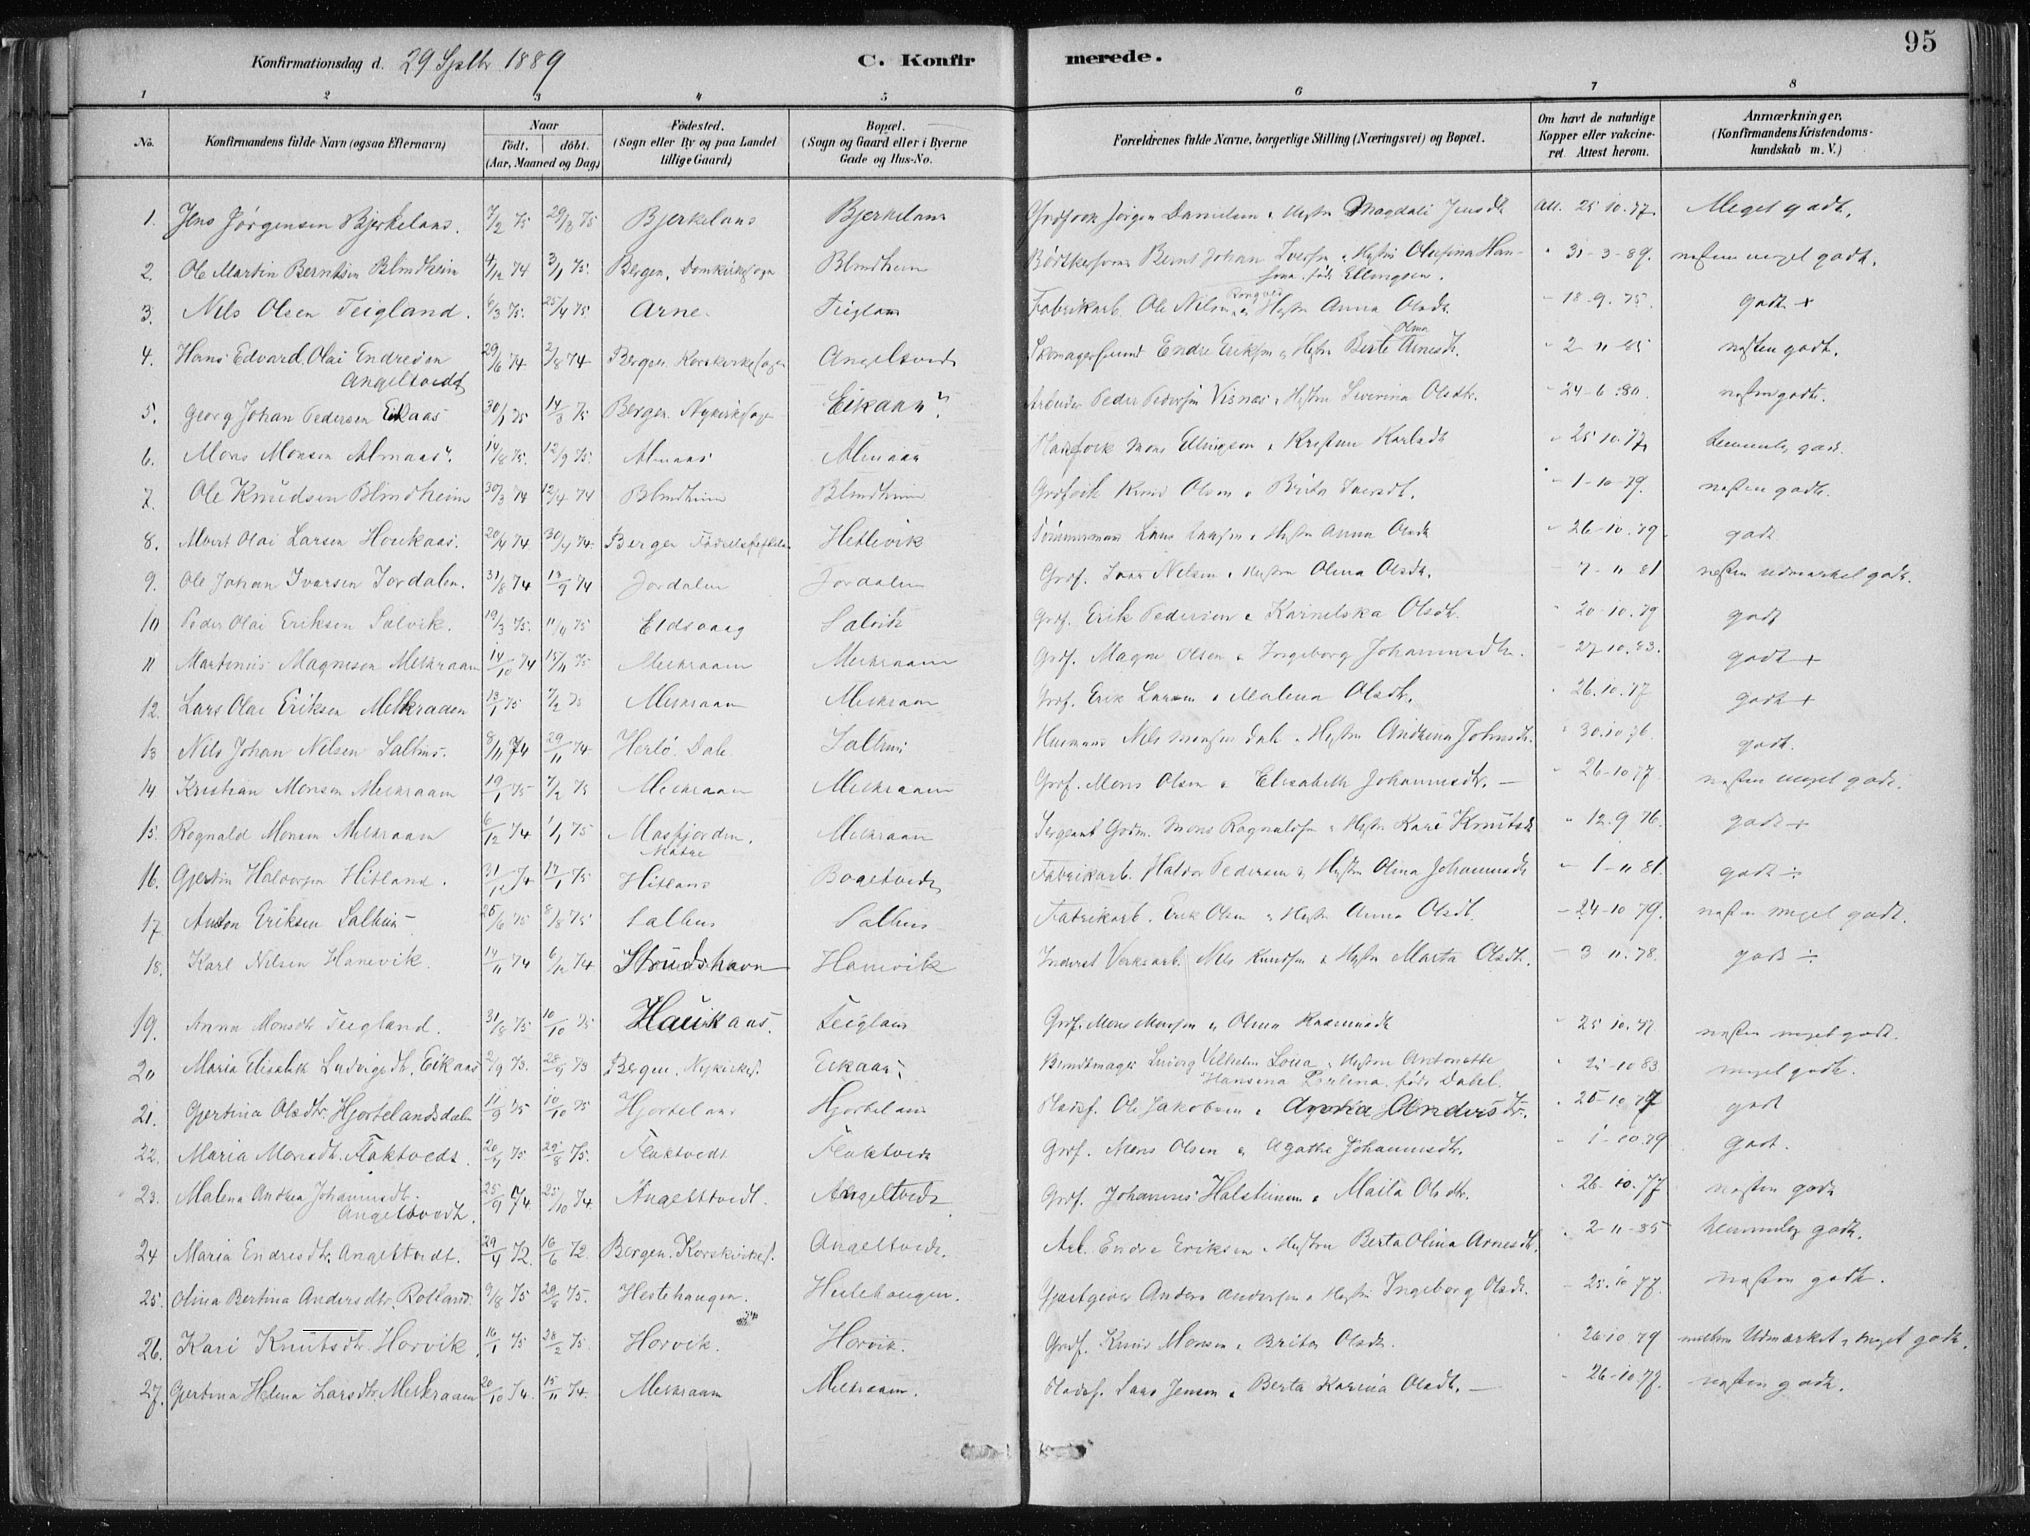 95
Konfirmationsdag d. 29 Septbr 1889 C. Konfirmerede.
1 2 3 4 5 6 7 8
No. Konfirmandens fulde Navn (ogsaa Efternavn) Naar født. døbt. (Aar, Maaned og Dag) Fødested. (Sogn eller By og paa Landet tillige Gaard) Bopæl. (Sogn og Gaard eller i Byerne Gade og Hus-No. Forældrenes fulde Navne, borgerlige Stilling (Næringsvei) og Bopæl. Om havt de naturlige Kopper eller vakcineret. Attest herom. Anmærkninger. (Konfirmandens Kristendomskundskab m. V.)
1. Jens Jørgensen Bjerkelans. 7/2 75 29/3 75 Bjerkelans Bjerkelans Jørgen Danielsen Magdali Jensdt Att. 25 10.77. Meget godt.
2. Ole Martin Berntsen Blindheim 4/12 74 3/1 75. Bergen, Domkirkesogn Blindheim Bernt Johan Iversen Hustru Olufina Han-
sine født Ellingsen. 31-3-89. næsten meget godt.
3. Nils Olsen Teigland. 6/3 75. 25/4 75 Arne. Teigland Fabrikarb. Ole Nilsen Hustru Anna Olsdt. 18-9.75. godt +
4. Hans Edvard Olai Endresen
Angeltvedt 29/6 74 2/8 74 Bergen Korskirkesogn Angeltvedt Endre Eriksen Hustru Berte Olina Arnesdt. 2 11 85 næsten godt.
5. Georg Johan Pedersen Eikaas 30/1 75 14/3 75 Bergen. Nykirkesogn Eikaas. Arbeider Peder Pedersen Visnæs Hustru Severina Olsdt. 24-6.80. næsten godt.
6. Mons Monsen Almaas. 14/8 75. 12/9 75. Almaas Almaas Mons Ellingsen Kristine Karlsdt 25 10.77 temmelig godt.
7. Ole Knudsen Blindheim 30/3 74 12/4 74 Blindheim Blindheim Knud Olsen Brita 1-10-79. næsten godt.
8. Alvert Olai Larsen Houkaas. 20/4 74 30/4 74. Bergen Fødselsstiftelsen Hetlevik Tømmermand Lars Larsen Hustru Anna Olsdt 26-10.79. godt
9. Ole Johan Ivarsen Jordalen. 31/8 74 13/9 74 Jordalen Jordalen Grdf. Ivar Nilsen Hustru Olina Olsdt. 7-11 81 næsten udmærket godt.
10 Peder Olai Eriksen Salvik. 19/3 75. 11/4 75 Eidsvaag Salvik Grdf. Erik Pedersen Karnelska Olsdt. 20-10.79 godt
11 Martinus Magnesen Melkraaen 14/10 74 15/11 75 Melkraaen Melkraaen Grdf. Magne Olsen Ingeborg Johannesdt. 27-10.83. godt +
12. Lars Olai Eriksen Melkraaen 13/1 75 7/2 75 Melkraaen Melkraaen Grdf. Erik Larsen Malena Olsdt. 26.10.77 godt +
13 Nils Johan Nilsen Salhus. 8/11 74 29/11 74. Herlø. Dale Salhus Husmand Nils Monsen Dale Hustru Andrina Johnsdt. 30.10.76. godt.
14 Kristian Monsen Melkraaen 19/1 75 7/2 75 Melkraaen Melkraaen Grdf. Mons Olsen Elisabeth Johannesdt. — 26-10 77 næsten meget godt.
15. Rognald Monsen Melkraaen 6/12 74 1/1 75 Masfjorden.
Matre Melkraaen Sergeant Grdm. Mons Ragnaldsen Hustru Kari Knutsdt 12.9 76. godt +
16. Gjertin Haldorsen Hitland. 31/12 74 17/1 75 Hitland Bogetvedt Fabrikarb. Haldor Pedersen Hustru Olina Johannesdt 1-11 81. godt ÷
17 Anton Eriksen Salhus 25/6 75 8/8 75 Salhus Salhus Fabrikarb. Erik Olsen Hustru Anna Olsdt. 24-10 79. næsten meget godt.
18. Karl Nilsen Hanevik. 14/11 74 6/12 74. Studshavn Hanevik Inderst Verksarb. Nils Knudsen Hustru Marta Olsdt. 3-11.78. godt ÷
19. Anna Monsdtr Teigland. 31/8 75 10/10 75 Haukaas. Teigland Grdf. Mons Monsen Olina 25 10.77 næsten meget godt.
20 Maria Elisabet Ludvigsdt. Eikaas 2/9 73. 28/9 73 Bergen. Nykirkes. Eikaas. Bundtmager Ludvig Vilhelm Hustru Antonette
Hansena født Dahl. 25-10 83 meget godt.
21. Gjertina Olsdtr. Hjortelandsdalen 11/9 75 10/10 75 Hjortelans Hjortelans Pladsf. Ole Jakobsen Andersdtr. 25-10 77 godt
22. Maria Monsdt. Flaktvedt. 20/4 75 29/8 75. Flaktvedt Flaktvedt Grdf. Mons Olsen Agathe Johannesdt. 1-10.79 godt.
23. Malena Andrea Johannesdt.
Angeltvedt. 25/9 74. 25/10 74. Angeltvedt. Angeltvedt Grdf. Johannes Halsteinsen Marta Olsdt. 26.10.77 næsten godt
24 Maria Endresdtr. Angeltvedt. 29/4 72. 16/6 72. Bergen. Korskirkes. Angeltvedt. Arb. Endre Eriksen Hustru Berta Olina Arnesdt. 2-11-85 temmelig godt.
25. Olina Bertina Andersdtr. Rolland. 9/8 75 29/8 75. Hestehaugen. Hestehaugen. Gjæstgiver Anders Andersen Hustru Ingeborg Olsdt. 25.10 77. næsten godt.
26. Kari Knutsdtr Horvik. 16/1 75 28/2 75. Horvik. Horvik. Grdf. Knud Monsen Brita Olsdt. 26.10 79 mellem Udmærket og meget godt.
27. Gjertina Helena Larsdtr. Melkraaen 20/10 74. 15/11 74. Melkraaen Melkraaen. Pladsf. Lars Jensen Berta Karina Olsdt. — 26-10.77. næsten godt.